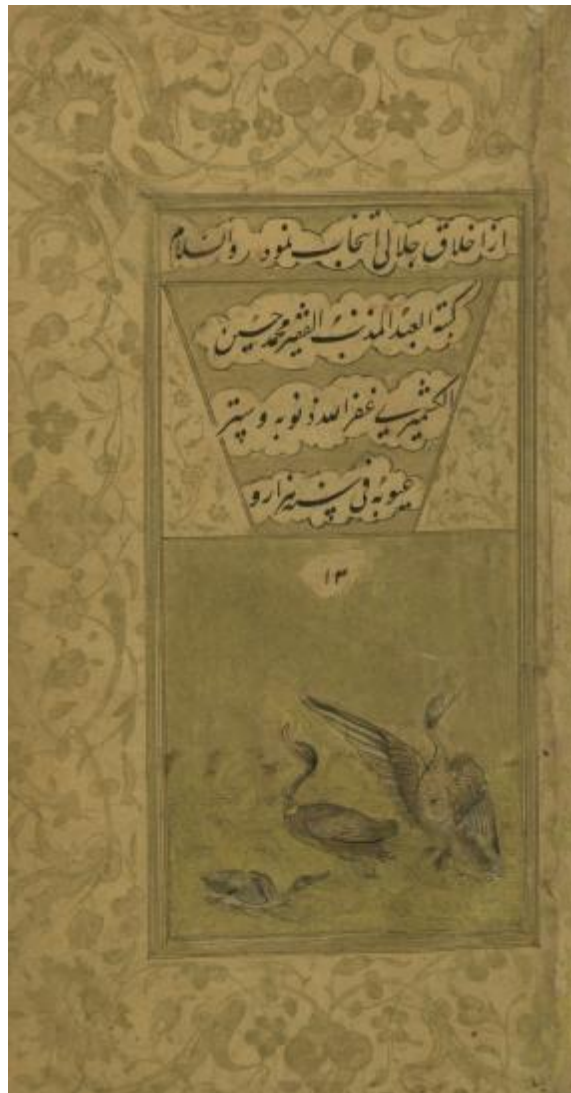 از اخلاق جلالی انتخاب نمود والسلام
کتبه العبد المذنب الفقیر محمد حسین
الکشمیری غفر الله ذنوبه و ستر
عیوبه فی سنه هزار و
۱۳